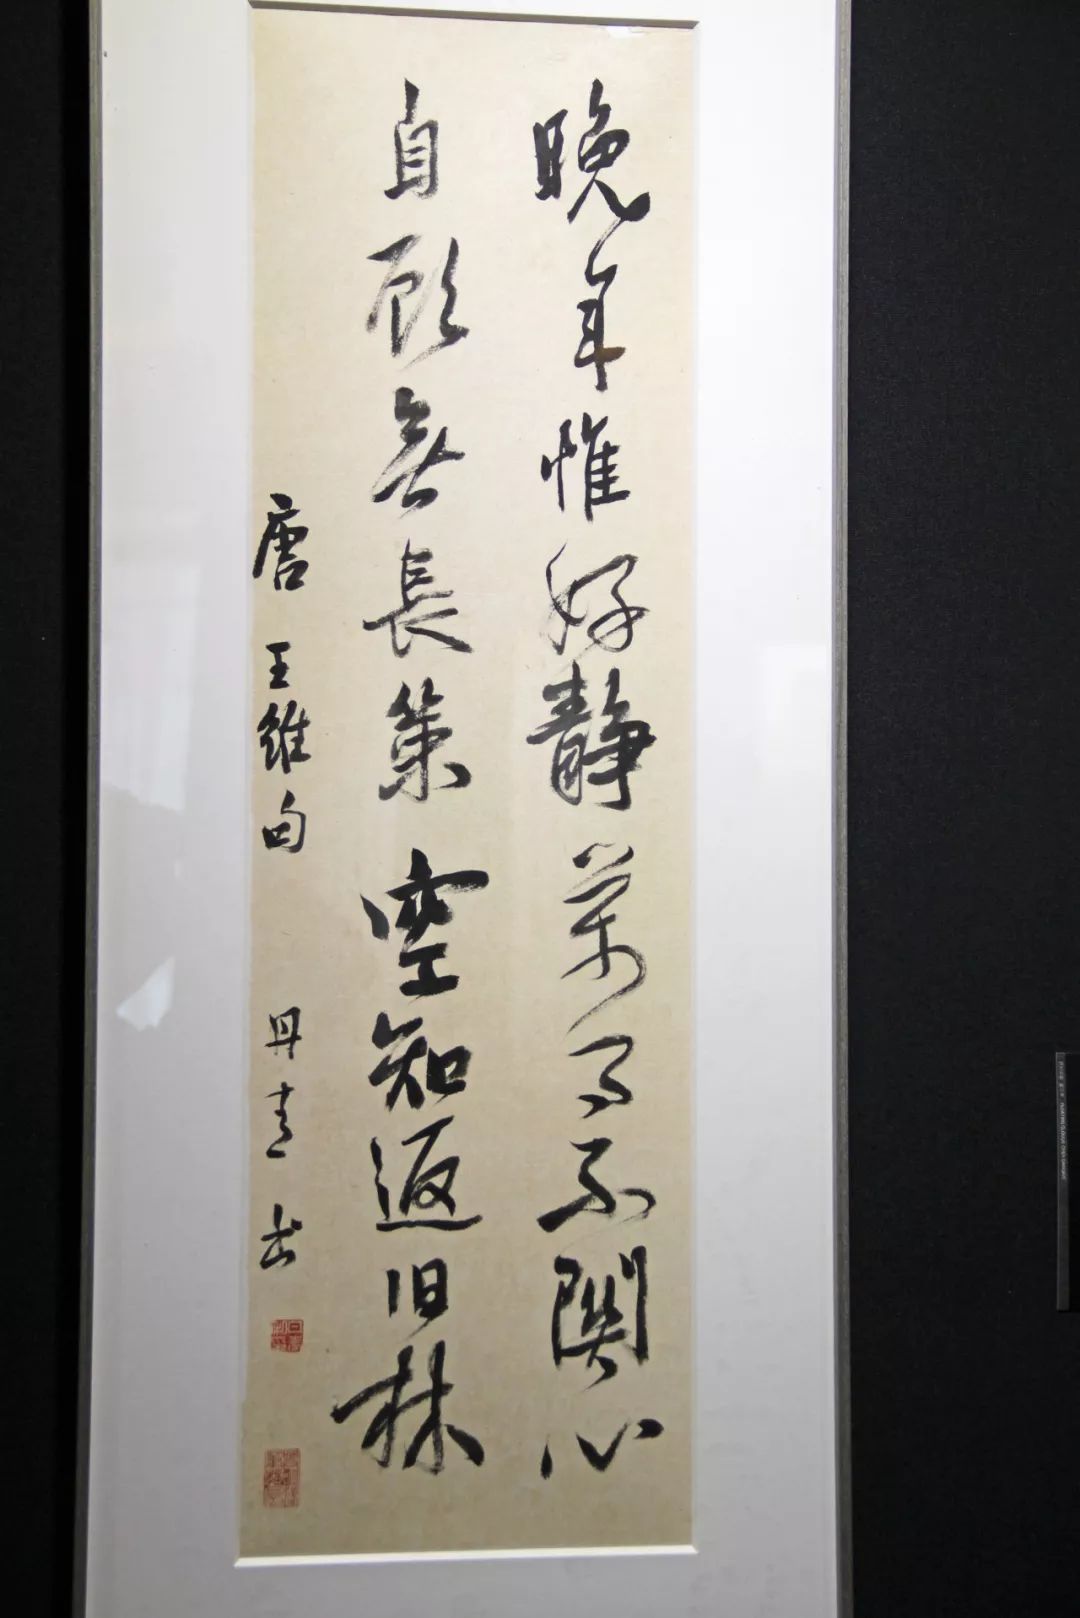 晚年惟好静萬事不関心
自顧無長策空知返旧林
唐 王維句 丹青書